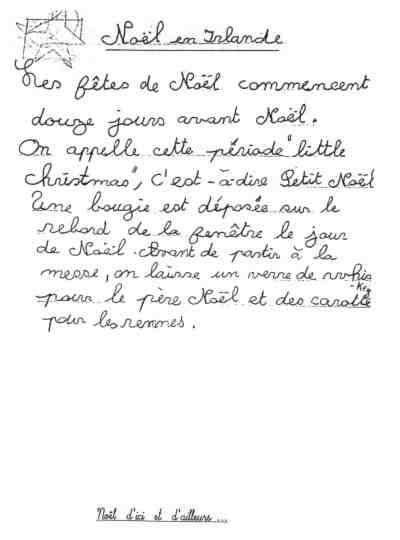 Noël en Irlande
Les fêtes de Noël commencent
douze jours avant Noël.
On appelle cette période "little
christmas", c'est-à-dire Petit Noël
Une bougie est déposée sur le
rebord de la fenêtre le jour
de Noël. Avant de partir à la
messe, on laisse un verre de whis
-key
pour le père Noël et des carotte
pour les rennes.
Noël d'ici et d'ailleurs...